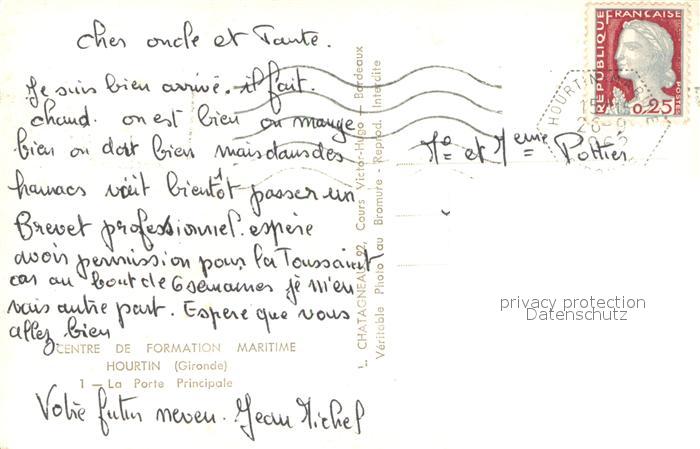 cher oncle et Tante.
Je suis bien arrivé. il fait.
chaud. on est bien on mange
bien on dort bien mais dans des
hamacs vait bientôt passer un
Brevet professionnel. espère
avoir permission pour la Toussaint
car au bout de 6 semaines je m'en
vais autre part. Espere que vous
allez bien
CENTRE DE FORMATION MARITIME
HOURTIN (Gironde)
1 — La Porte Principale
Votre futur neveu. Jean Michel
L. CHATAGNEAU, 92, Cours Victor-Hugo — Bordeaux
Véritable Photo au Bromure - Reprod. Interdite
REPUBLIQUE FRANÇAISE
POSTES
0,25
HOURTIN
Mr et Mme Pottier
privacy protection
Datenschutz